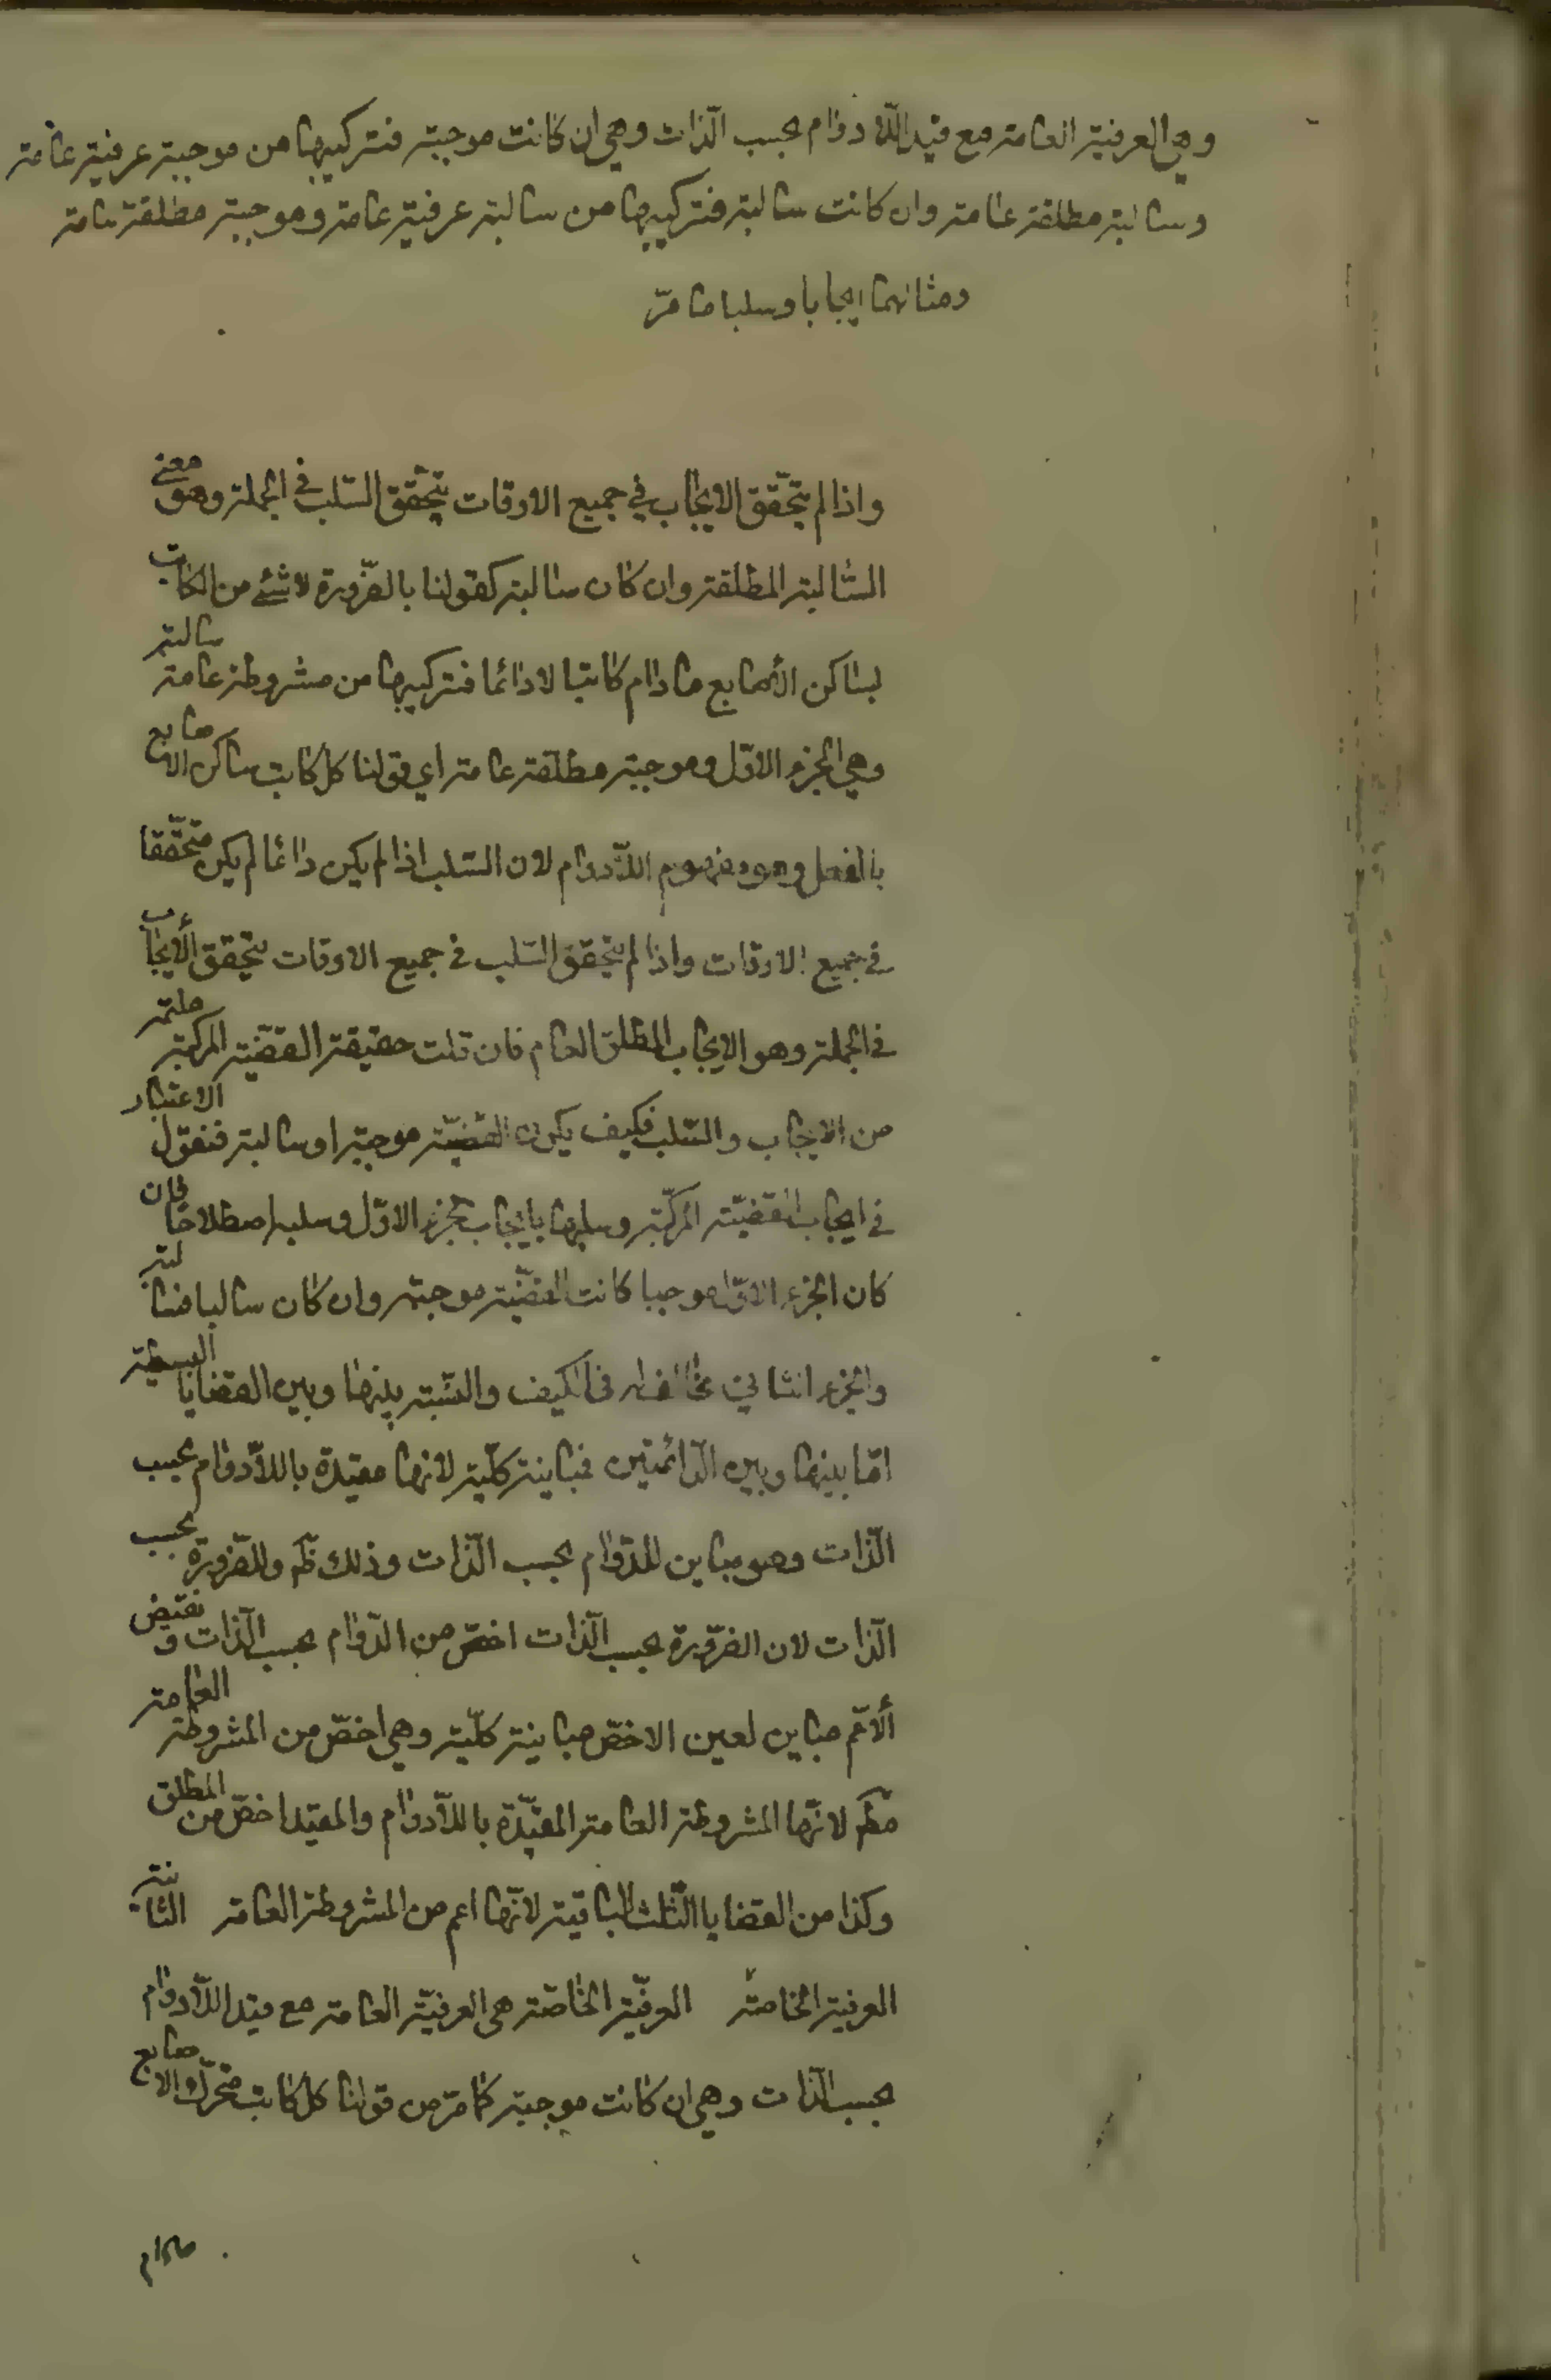 وهي العرفية العامة مع قيد اللا دوام بحسب الذات وهي ان كانت موجبة فتركيبها من موجبة عرفية عامة
وسالبة مطلقة عامة وان كانت سالبة فتركيبها من سالبة عرفية عامة وموجبة مطلقة عامة
ومثالهما ايجابا وسلبا ما مرّ
واذا لم يتحقّق الايجاب في جميع الاوقات يتحقّق السّلب في الجملة وهو معنى
السّالبة المطلقة وان كان سالبة كقولنا بالضّرورة لا شئ من الكاتب
بساكن الأصابع ما دام كاتبا لا دائما فتركيبها من مشروطة عامة سالبة
وهي الجزء الاوّل وموجبة مطلقة عامة اي قولنا كل كاتب ساكن الاصابع
بالفعل وهو مفهوم اللّادوام لان السّلب اذا لم يكن دائما لم يكن متحقّقا
في جميع الاوقات واذا لم يتحقق السّلب في جميع الاوقات يتحقق الأيجاب
في الجملة وهو الايجاب المطلق العام فان قلت حقيقة القضيّة المركّبة ملتئمة
من الايجاب والسّلب فكيف يكون القضيّة موجبة او سالبة فنقول الاعتبار
في ايجاب القضيّة المركّبة وسلبها بايجاب الجزء الاوّل وسلبه اصطلاحا فان
كان الجزء الاوّل موجبا كانت القضيّة موجبة وان كان سالبا فسالبة
والجزء الثاني مخالف له في الكيف والنّسبة بينها وبين القضايا البسيطة
امّا بينها وبين الدّائمتين فمباينة كلّية لانها مقيدة باللّادوام بحسب
الذّات وهو مباين للدّوام بحسب الذّات وذلك ظّه وللضّرورة بحسب
الذّات لان الضّرورة بحسب الذّات اخصّ من الدّوام بحسب الذّات و نقيض
ألاعّم مباين لعين الاخصّ مباينة كلّية وهي اخصّ من المشروطة العامة
مطّه لانّها المشروطة العامة المقيّدة باللّادوام والمقيد اخصّ من المطلق
وكذا من القضايا الثّلث الباقية لانّها اعم من المشروطة العامة الثانية
العرفية الخاصة العرفيّة الخاصّة هي العرفيّة العامة مع قيد اللّادوام
بحسب الذّات وهي ان كانت موجبة كما مرّ من قولنا كل كاتب متحرّك الاصابع
مادام